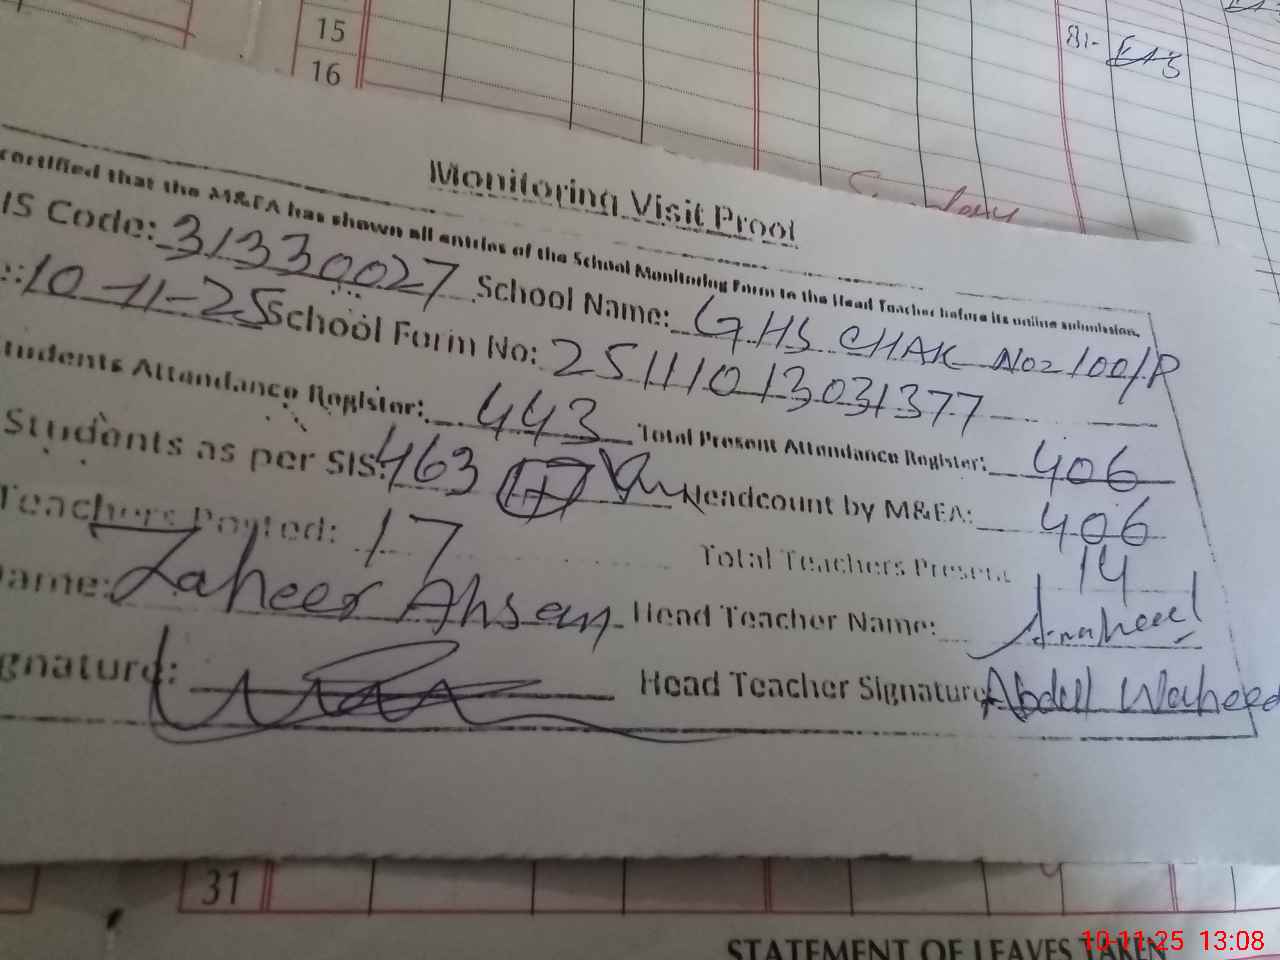 15
16
Monitoring Visit Proof
certified that the M&EA has shown all entries of the School Monitoring Form to the Head Teacher before its online submission.
IS Code: 31330027 School Name: GHS CHAK No= 100/P
: 10-11-25 School Form No: 25111013031377
tudents Attendance Register: 443 Total Present Attendance Register: 406
Students as per SIS: 463 Headcount by M&EA: 406
Teachers Posted: 17 Total Teachers Present: 14
ame: Zaheer Ahsan Head Teacher Name:
gnature: Head Teacher Signature: Abdul Waheed
31
STATEMENT OF LEAVES TAKEN
10-11-25 13:08